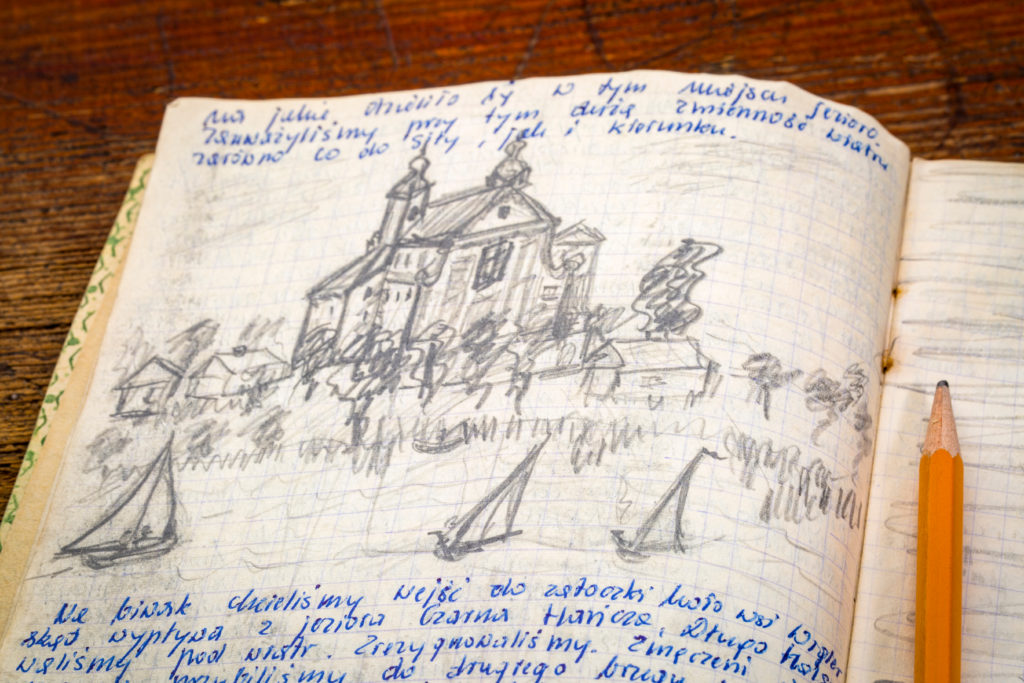 na jakie dzieliło się w tym miejscu jezioro.
Zauważyliśmy przy tym dużą zmienność wiatru
zarówno co do siły, jak i kierunku.
Na biwak chcieliśmy wejść do zatoczki koło wsi
skąd wypływa z jeziora Czarna Hańcza. Długo
waliśmy pod wiatr. Zrezygnowaliśmy. Zmęczeni
przybiliśmy do drugiego brzegu